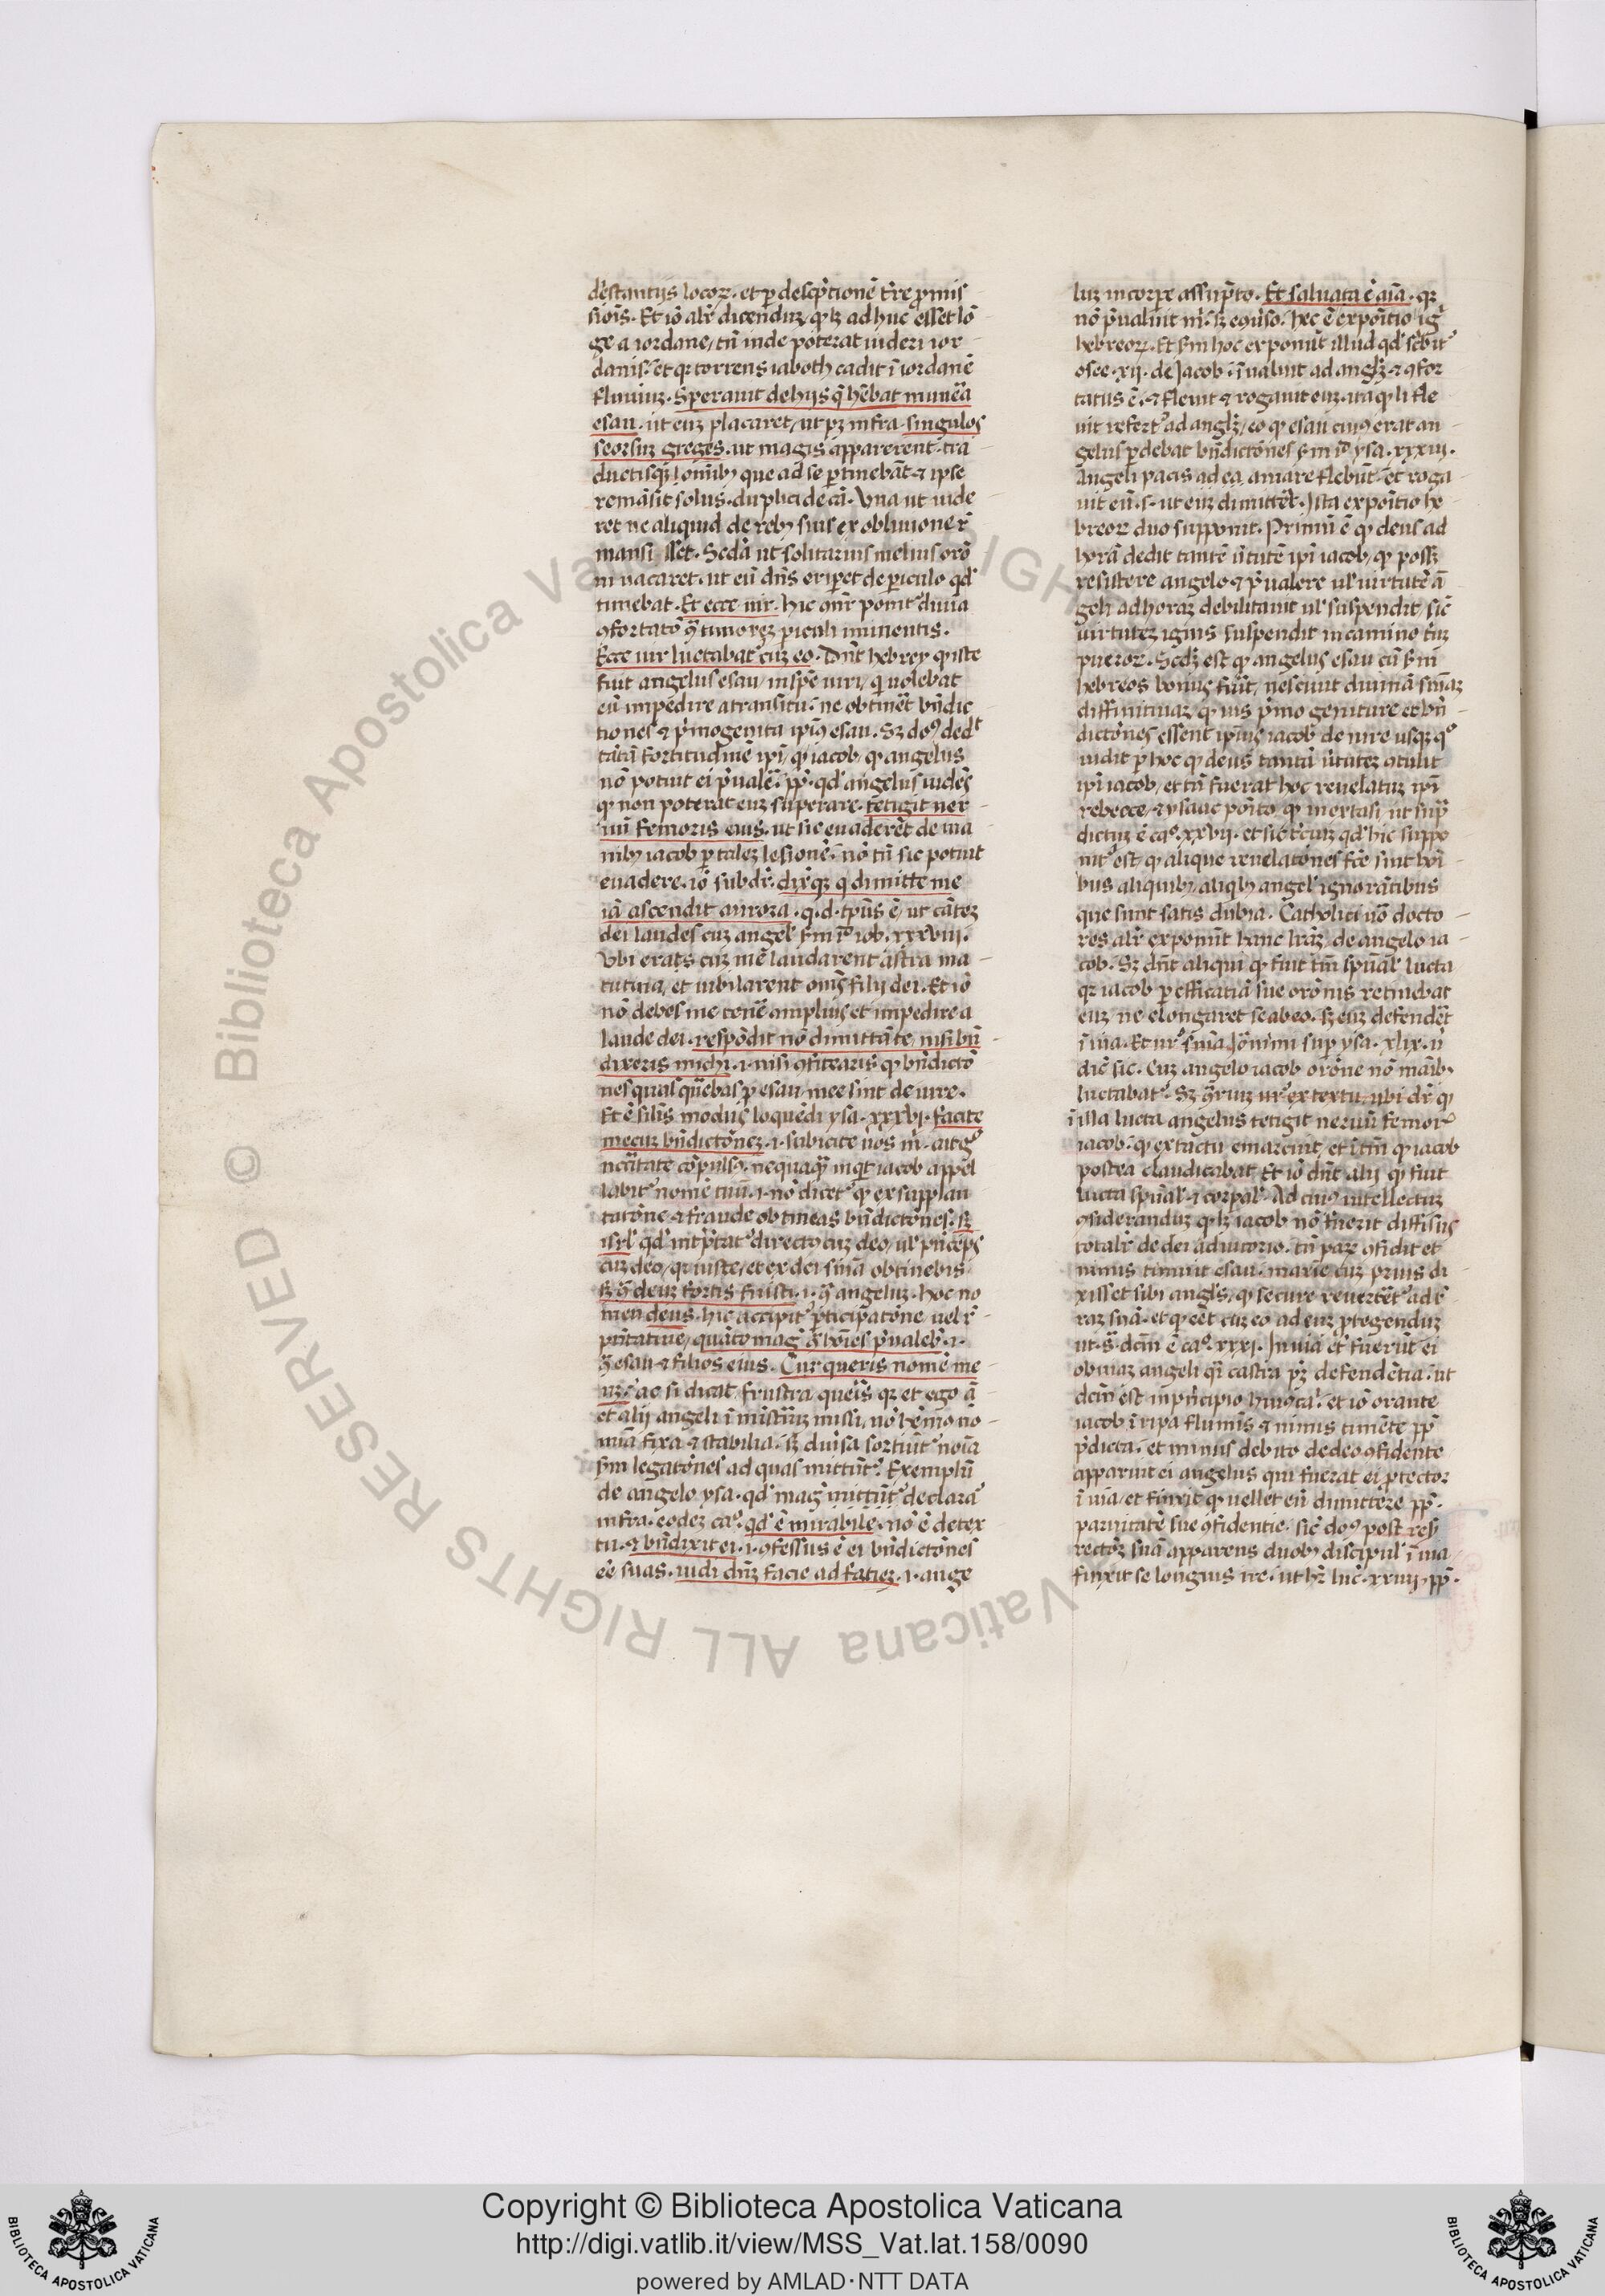 distantijs locoꝝ. et ꝑ descp̄tionē tr̄e ꝓmis
sioīs. Et iō alr̄ dicenduꝫ, ꝙ lꝫ ad huc esset lō
ge a iordane, tn̄ inde poterat uideri ior
danis. et qꝛ torrens iaboth cadit ī iordanē
fluuiuꝫ. Separauit de hijs q̄ hēbat munera
esau. ut euꝫ placaret, ut pꝫ infra. singulos
seorsuꝫ greges. ut magis apparerent. tra
ductisqꝫ omībꝫ que ad se ꝑtinebāt. ⁊ ipse
remāsit solus. duplici de cā. Una ut uide
ret ne aliquid de rebꝫ suis ex obliuione r̄
mansisset. Scd̄a ut solitarius melius orō
ni uacaret. ut eū dn̄s eriꝑet de ꝑiculo qd̓
timebat. Et ecce uir. hic ponit̓ diuia
ꝯfortatō timoreꝫ ꝑiculi iminentis.
Ecce uir luctabat̓ cuꝫ eo. Dn̄t hebrey ꝙ iste
fuit angelus esau, in spē uiri, qͥ uolebat
eū impedire a transitu. ne obtinēt bn̄dic
tiones ⁊ p̄mogenita ipīꝰ esau. Sꝫ dedͭ
tātā fortitudinē ipī iacob, ꝙ angelus
nō potuit ei p̄ualē. pp̄ qd̓ angelus uidēs
ꝙ non poterat euꝫ superare. tetigit ner
uū femoris eius. ut sic euaderēt de ma
nibꝫ iacob ꝑ taleꝫ lesionē. nō tn̄ sic potuit
euadere. iō subdr̄. dixitqꝫ dimitte me
iā ascendit aurora. q.d. tp̄us ē, ut cāteꝫ
dei laudes cuꝫ angel̓ sm̄ iō iob. xxxviij.
Ubi eratꝭ cuꝫ mē laudarent astra ma
tutina, et iubilarent omīs filij dei. Et iō
nō debes me tenē amplius et impedire a
laude dei. respōdit nō dimittā te, nisi bn̄
dixeris michi. i. nisi ꝯfitearis ꝙ bn̄dictō
nes quas q̄rebas ꝓ esau, mee sint de iure.
Et ē silīs modus loquēdi ysa. xxxvj. facite
mecuꝫ bn̄dictōneꝫ. i. subicite uos m̄.
ncc̄itate cōpulsꝰ. nequaqꝫ inqͥt iacob appel
labit̓ nomē tuū. i. nō dicet̓ ꝙ ex supplan
tatōne ⁊ fraude obtineas bn̄dictōnes. sꝫ
isrl̓ qd̓ int̓p̄tat̓ directo cuꝫ deo, ul̓ pn̄ceps
cuꝫ deo, qꝛ iuste, et ex dei snīa obtinebis.
deuꝫ fortis fuisti. i. angeluꝫ. hoc no
men deus. hic accipit̓ ꝑticipatōne uel r̄
pn̄tatiue, quāto magꝭ hoīes p̄ualebꝭ. i.
esau ⁊ filios eius. Cur queris nomē me
uꝫ. ac si dicat, frustra queris qꝛ et ego ⁊
et alij angeli ī mīsteriuꝫ missi, nō hēmꝰ no
mīa fixa ⁊ stabilia. sꝫ diuīsa sortiūt̓ noīa
sm̄ legatōnes ad quas mittūt̓. Exemplū
de angelo ysa. qd̓ magꝭ mittūt̓ declara
infra. eodeꝫ caͦ. qd̓ ē mirabile. nō ē in tex
tu. ⁊ bn̄dixit ei. i. ꝯfessus ē ei bn̄dictōnes
eē suas. uidi dn̄ꝫ facie ad facieꝫ. i. ange
luꝫ in corꝑe assūpto. Et saluata ē aīa. qꝛ
nō p̄ualuit m̄. sꝫ ecōuerso. hec ē expoītio
hebreoꝝ. Et sm̄ hoc exponūt illud qd̓ scbīt̓
osee. xij. de Jacob. īualuit ad anglꝫ ⁊ ꝯfor
tatus ē. ⁊ fleuit ⁊ rogauit euꝫ. ita ꝙ li fle
uit refert̓ ad anglꝫ, eo ꝙ esau cuiꝰ erat an
gelus ꝑdebat bn̄dictōnes sm̄ iḋ ysa. xxxiij.
Angeli pacis ad ea amare flebūt. et roga
uit eū. s. ut euꝫ dimittēt. Ista expoītio he
breoꝝ duo supponit. Primū ē ꝙ deus ad
horā dedit tantē uirtutē ipī iacob, ꝙ possꝫ
resistere angelo ⁊ p̄ualere ul̓ uirtutē ā
geli ad horaꝫ debilitauit ul̓ suspendit, sic̄
uirtuteꝫ ignis suspendit in camino triū
pueroꝝ. Scd̄ꝫ est ꝙ angelus esau cū sm̄
hebreos bonus fūit, nesciuit diuinā sn̄iaꝫ
diffinitiuaꝫ ꝙ ius p̄mo geniture et bn̄
dictōnes essent ipiꝰ iacob de iure usqꝫ qͦ
uidit ꝑ hoc ꝙ deus tantā uirtuteꝫ ꝯtulit
ipī iacob, et tn̄ fuerat hoc reuelatuꝫ ipī
rebecce, ⁊ ysaac posito ꝙ in extasi, ut supͣ
dictuꝫ ē caͦ. xxvij. et sic tciuꝫ qd̓ hic suppo
nit̓ est, ꝙ alique reuelatōnes fce sint boī
bus aliquibꝫ, aliqͥbꝫ angel̓ ignorātibus
que sunt satis dubia. Catholici uō docto
res alr̄ exponūt hanc lrāꝫ, de angelo ia
cob. Sꝫ dn̄t aliqui ꝙ fuit tm̄ spūal̓ lucta
qꝛ iacob ꝑ efficatiā sue orōnis retinebat
euꝫ ne elongaret se ab eo. sꝫ euꝫ defendēt
ī uia. Et ur̄ snīa Jōnimi suꝑ ysa. xlix. u
dic̄ sic. Cuꝫ angelo iacob orōne nō māibꝫ
luctabat̓. Sꝫ ꝯriuꝫ ur̄ ex textu, ubi dr̄ ꝙ
ī illa lucta angelus tetigit neruū femorꝭ
iacob. ꝙ ex tactu emarcuit, et ītm̄ ꝙ iacob
postea claudicabat. Et iō dn̄t alij ꝙ fuit
lucta spūal̓ ⁊ corꝑal̓. Ad cuiꝰ intellectuꝫ
ꝯsideranduꝫ ꝙ lꝫ iacob nō fuerit diffisus
totalr̄ de dei adiutorio. tn̄ paꝝ ꝯfidit et
nimis timuit esau. maxīe cuꝫ prius di
xisset sibi angl̓s, ꝙ secure reuertēt̓ ad t̄
raꝫ suā. et ꝙ eēt cuꝫ eo ad euꝫ ꝓtegenduꝫ
ut. sͣ. dcm̄ ē caͦ. xxxj. In uia et̓ fuerūt ei
obuiaꝫ angeli qͥ castra pꝫ defendētia. ut
dcm̄ est in pn̄cipio huiꝰ caͥ. et iō orante
iacob ī ripa flumīs ⁊ nimis timēte pp̄
p̄dicta. et minus debito de deo ꝯfidente
apparuit ei angelus qui fuerat ei ꝓtector
ī uia, et finxit ꝙ uellet eū dimittere pp̄.
paruitatē sue ꝯfidentie. sic̄ post resͧ
rectōꝫ suā apparens duobꝫ discipul̓ ī uia
finxit se longius ire. ut hr̄ luc̄. xxiiij, pp̄.
Copyright © Biblioteca Apostolica Vaticana
http://digi.vatlib.it/view/MSS_Vat.lat.158/0090
powered by AMLAD·NTT DATA
© Biblioteca Apostolica Vaticana ALL RIGHTS RESERVED
BIBLIOTECA APOSTOLICA VATICANA
BIBLIOTECA APOSTOLICA VATICANA